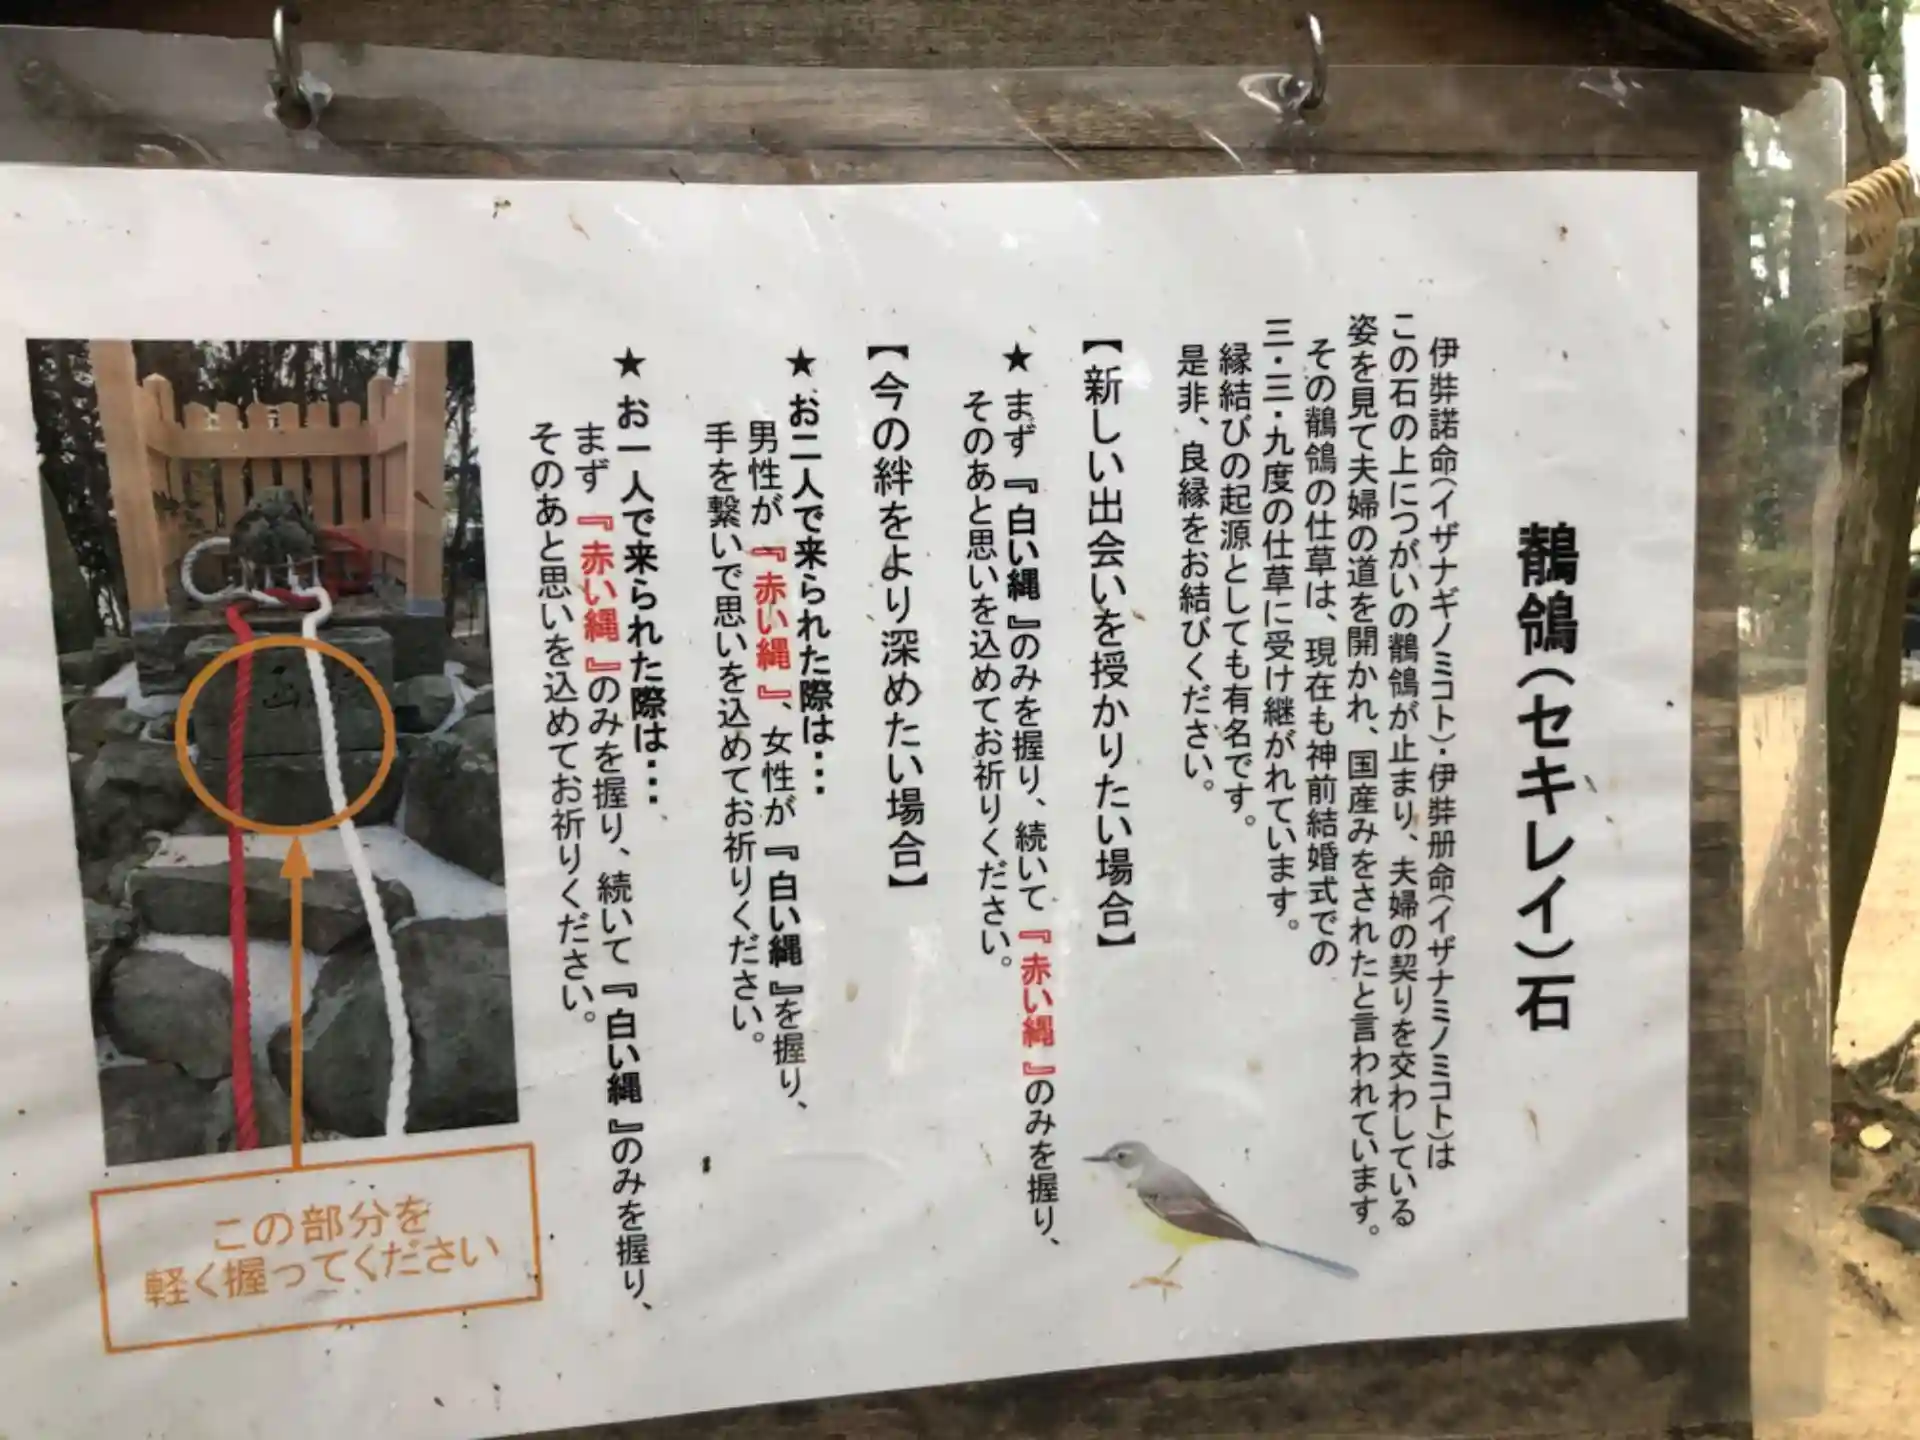 鶺鴒(セキレイ)石
伊弉諾命(イザナギノミコト)・伊弉册命(イザナミノミコト)は
この石の上につがいの鶺鴒が止まり、夫婦の契りを交わしている
姿を見て夫婦の道を開かれ、国産みをされたと言われています。
その鶺鴒の仕草は、現在も神前結婚式での
三・三・九度の仕草に受け継がれています。
縁結びの起源としても有名です。
是非、良縁をお結びください。
【新しい出会いを授かりたい場合】
★まず『白い縄』のみを握り、続いて『赤い縄』のみを握り、
そのあと思いを込めてお祈りください。
【今の絆をより深めたい場合】
★お二人で来られた際は・・・
男性が『赤い縄』、女性が『白い縄』を握り、
手を繋いで思いを込めてお祈りください。
★お一人で来られた際は・・・
まず『赤い縄』のみを握り、続いて『白い縄』のみを握り、
そのあと思いを込めてお祈りください。
この部分を
軽く握ってください